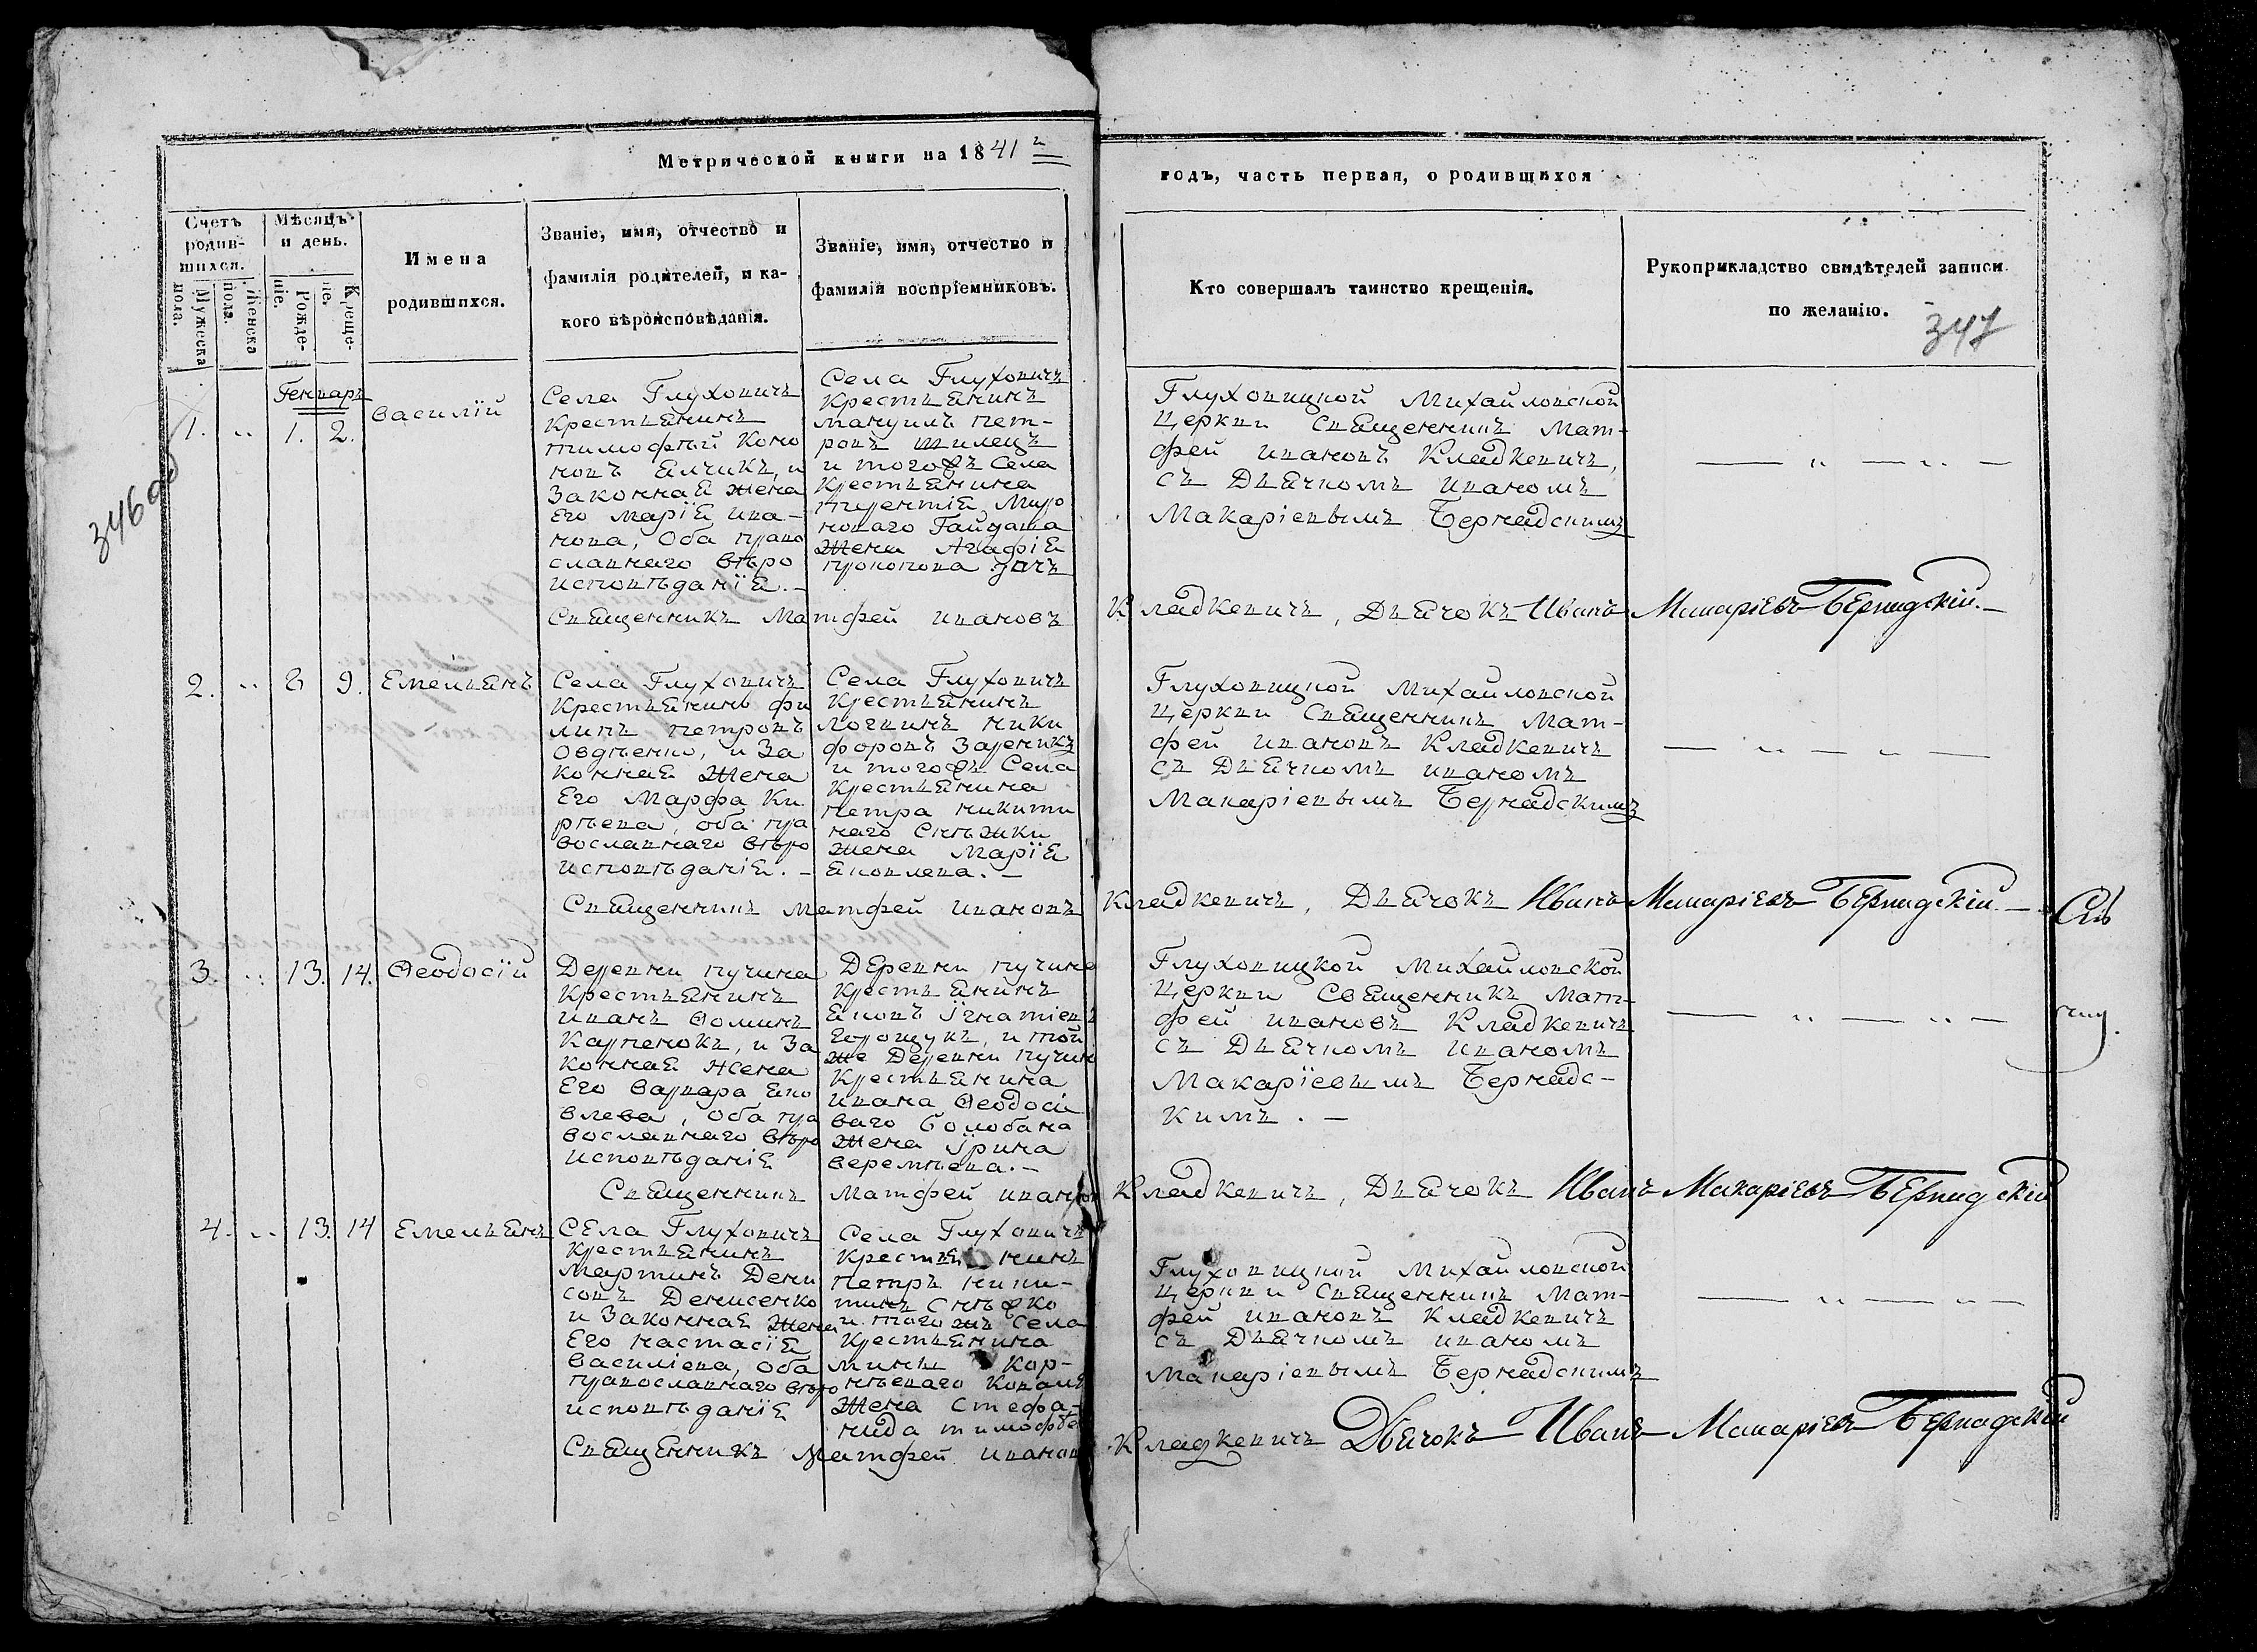 Метрической книги на 1841 г
годъ, часть первая, о родившихся
Счетъ родив-шихся.
Мужеска пола.
Женска пола.
Мѣсяцъ и день.
Рожде-ніе.
Креще-ніе.
Имена
родившихся.
Званіе, имя, отчество и
фамилія родителей, и ка-
кого вѣроисповѣданія.
Званіе, имя, отчество и
фамилія воспріемниковъ.
Кто совершалъ таинство крещенія.
Рукоприкладство свидѣтелей записи
по желанію.
347
346 об
Генваръ
1. „ 1. 2.
Василїй
Села Глуховичъ
Крестьянинъ
тимофѣй Коно
новъ Ялчикъ, и
Законная жена
Его Марїя Ива-
нова, Оба право
славнаго вѣро
исповѣданїя. –
Села Глуховичъ
Крестьянинъ
мануилъ пет-
ровъ
и тогожъ Села
Крестьянина
терентїя Миро
новаго Гайдаша
Жена Агафїя
прокопова дочь
Глуховицкой Михайловской
Церкви Священникъ Мат-
фей ивановъ Кладкевичъ,
съ Дьячкомъ иваномъ
Макаріевымъ Бернадскимъ
Священникъ Матфей ивановъ Кладкевичъ, Дьячокъ Иванъ Макаріевъ Бернадскій. –
2. „ 8 9.
Емельянъ
Села Глуховичъ
Крестьянинъ фи
липъ петровъ
Овдѣенко, и За
конная Жена
Его Марфа Ки
рѣева, оба пра
вославнаго вѣро
исповѣданїя. –
Села Глуховичъ
Крестьянинъ
логвинъ ники
форовъ
и тогожъ Села
Крестьянина
петра никити
наго Снѣжки
жена Марїя
яковлева. –
Глуховицкой Михайловской
Церкви Священникъ Мат-
фей ивановъ Кладкевичъ
съ Дьячкомъ иваномъ
Макаріевымъ Бернадскимъ
Священникъ Матфей ивановъ Кладкевичъ, Дьячокъ Иванъ Макаріевъ Бернадскій. –
3. „ 13. 14.
Ѳеодосїй
Деревни пучина
Крестьянинъ
иванъ Ѳоминъ
Карпенокъ, и За
конная жена
Его Варвара Яко
влева, оба пра
вославнаго вѣро
исповѣданїя
Деревни пучина
Крестьянинъ
яковъ Їгнатіевъ
горощукъ, и той
же Деревни пучин
Крестьянина
ивана Ѳеодосіе
ваго Болобана
жена Їрина
веремѣева. –
Глуховицкой Михайловской
Церкви Священникъ Мат-
фей ивановъ Кладкевичъ
съ Дьячкомъ иваномъ
Макарїевымъ Бернадс-
кимъ. –
Священникъ Матфей иванов Кладкевичъ, Дьячокъ Иванъ Макаріевъ Бернадскій
4. „ 13. 14
Емельянъ
Села Глуховичъ
Крестьянинъ
Мартинъ Дени
совъ Денисенко
и Законная Жена
Его настасїя
Василіева, оба
православнаго вѣро
исповѣданїя
Села Глуховичъ
Крестьянинъ
петръ ники-
тинъ Снѣжко
и тогожъ Села
Крестьянина
мины Кор-
нѣеваго Коваля
Жена Стефа-
нида тимофѣе
Глуховицкой Михайловской
Церкви Священникъ Мат-
фей ивановъ Кладкевичъ
съ Дьячкомъ иваномъ
Макаріевымъ Бернадскимъ
Священникъ Матфей иванов Кладкевичъ Дьячокъ Иванъ Макаріевъ Бернадскій